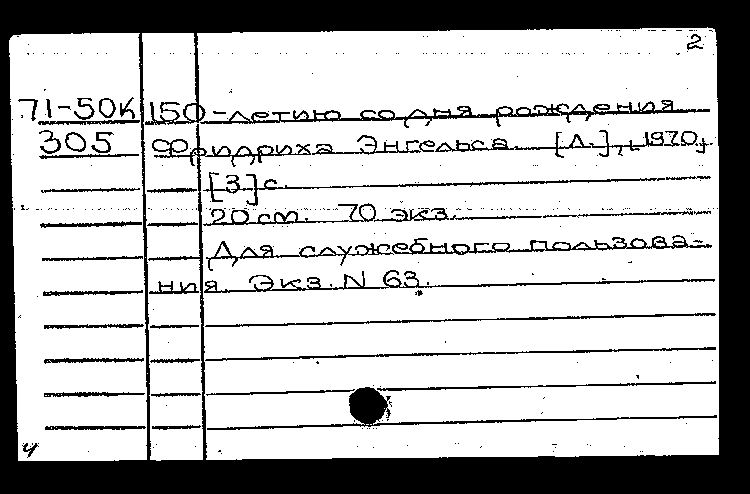 2
71-50К 150-летию со дня рождения
305 Фридриха Энгельса. [Л.], [1970]
[3] с.
20 см. 70 экз.
Для служебного пользова-
ния. Экз. N 63.
4